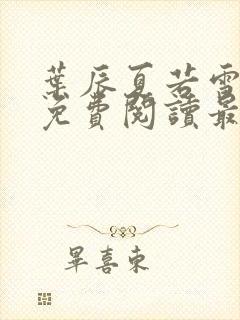 葉辰夏若雪
免費閱讀最
畢喜東